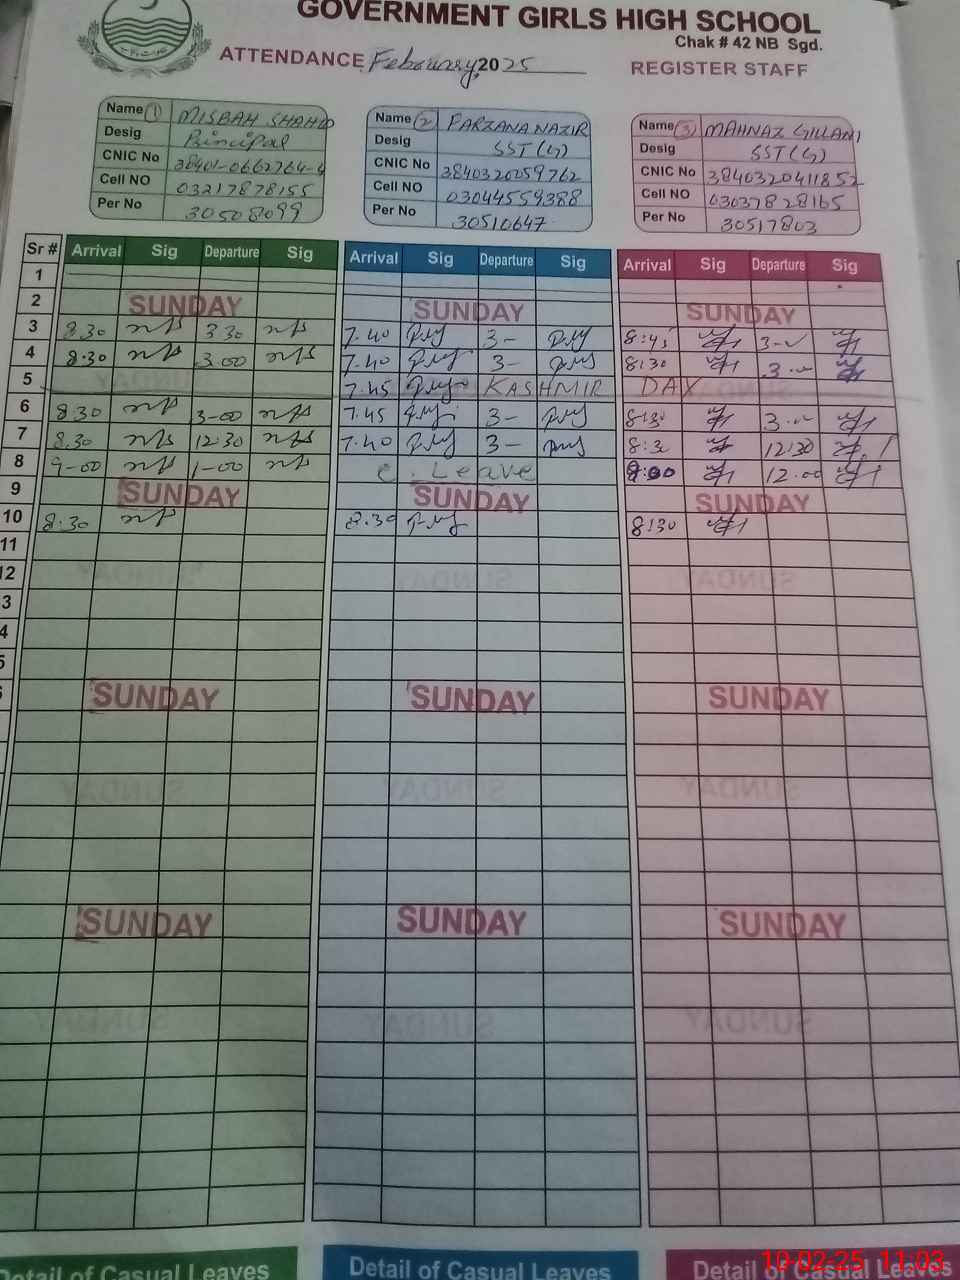 GOVERNMENT GIRLS HIGH SCHOOL
Chak # 42 NB Sgd.
ATTENDANCE February, 2025 REGISTER STAFF
Name (1) MISBAH SHAHID
Desig Principal
CNIC No 38401-0662764-4
Cell NO 03217878155
Per No 30508099
Name (2) FARZANA NAZIR
Desig SST(G)
CNIC No 3840320059762
Cell NO 03044559388
Per No 30510647
Name (3) MAHNAZ GILLANI
Desig SST(G)
CNIC No 3840320411852
Cell NO 03037828165
Per No 30517803
Sr # Arrival Sig Departure Sig Arrival Sig Departure Sig Arrival Sig Departure Sig
1
2 SUNDAY SUNDAY SUNDAY
3 8.30 3.30 7.40 3- 8:45
4 8.30 3.00 7.40 3- 8:30
5 7.45 KASHMIR DAY
6 8.30 3-00 7.45 3- 8:30
7 8.30 12.30 7.40 3- 8:3 12.30
8 9-00 1-00 C. Leave 9:00 12.00
9 SUNDAY SUNDAY SUNDAY
10 8:30 8.30 8:30
11
12
3
4
5
6 SUNDAY SUNDAY SUNDAY
SUNDAY SUNDAY SUNDAY
Detail of Casual Leaves Detail of Casual Leaves Detail of Casual Leaves
10-02-25 11:03